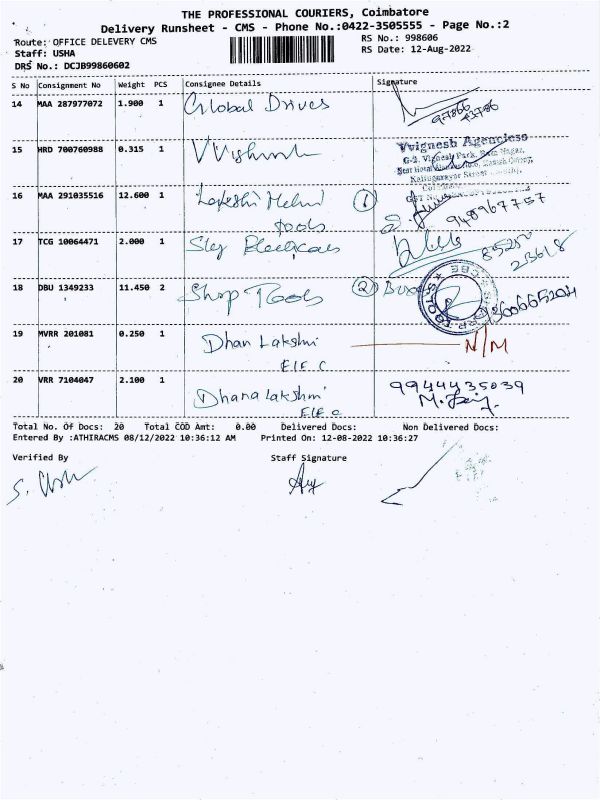 THE PROFESSIONAL COURIERS, Coimbatore
Delivery Runsheet - CMS - Phone No.:0422-3505555 - Page No.:2
Route: OFFICE DELEVERY CMS
RS No.: 998606
Staff: USHA
RS Date: 12-Aug-2022
DRS No.: DCJB99860602
S No Consignment No Weight PCS Consignee Details Signature
14 MAA 287977072 1.900 1 Global Drives
15 HRD 700760988 0.315 1
Vvignesh Agenciess
16 MAA 291035516 12.600 1 Lakshi ①
Tools 948967757
17 TCG 10064471 2.000 1 Sky Electricals
18 DBU 1349233 11.450 2 Shop Tools ② Box
19 MVRR 201081 0.250 1 Dhan Lakshmi N/M
EIE C
20 VRR 7104047 2.100 1 Dhana Lakshmi 9944435039
EIE C
Total No. Of Docs: 20 Total COD Amt: 0.00 Delivered Docs: Non Delivered Docs:
Entered By :ATHIRACMS 08/12/2022 10:36:12 AM Printed On: 12-08-2022 10:36:27
Verified By Staff Signature